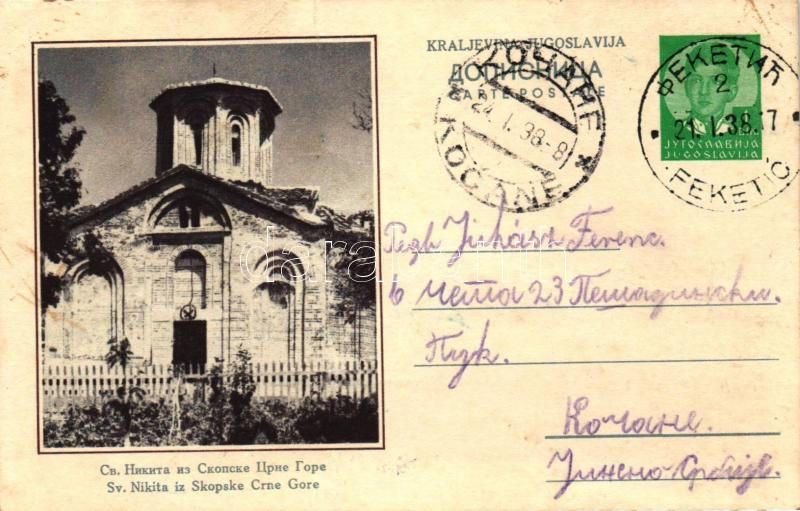 KRALJEVINA JUGOSLAVIJA
ДОПИСНИЦА
CARTE POSTALE
КОЧАНЕ
24. I. 38-8
KOČANE
ФЕКЕТИЋ
2
21. I. 38. 17
FEKETIĆ
ЈУГОСЛАВИЈА
JUGOSLAVIJA
Juhász Ferenc.
6 чета 23 Пешадински.
Пук.
Кочане.
Јужно Србије.
Св. Никита из Скопске Црне Горе
Sv. Nikita iz Skopske Crne Gore
darabanth.com